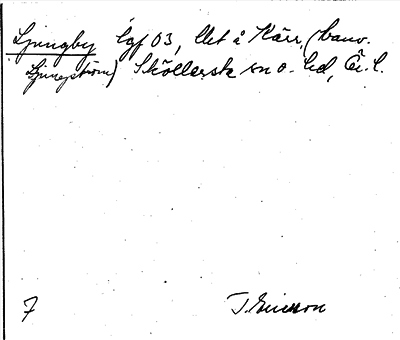 Ljungby lgf 03, llet å Kärr, (banv.
Ljungström) Sköllersta sn o. hd, Ör. l.
7 T. Ericsson